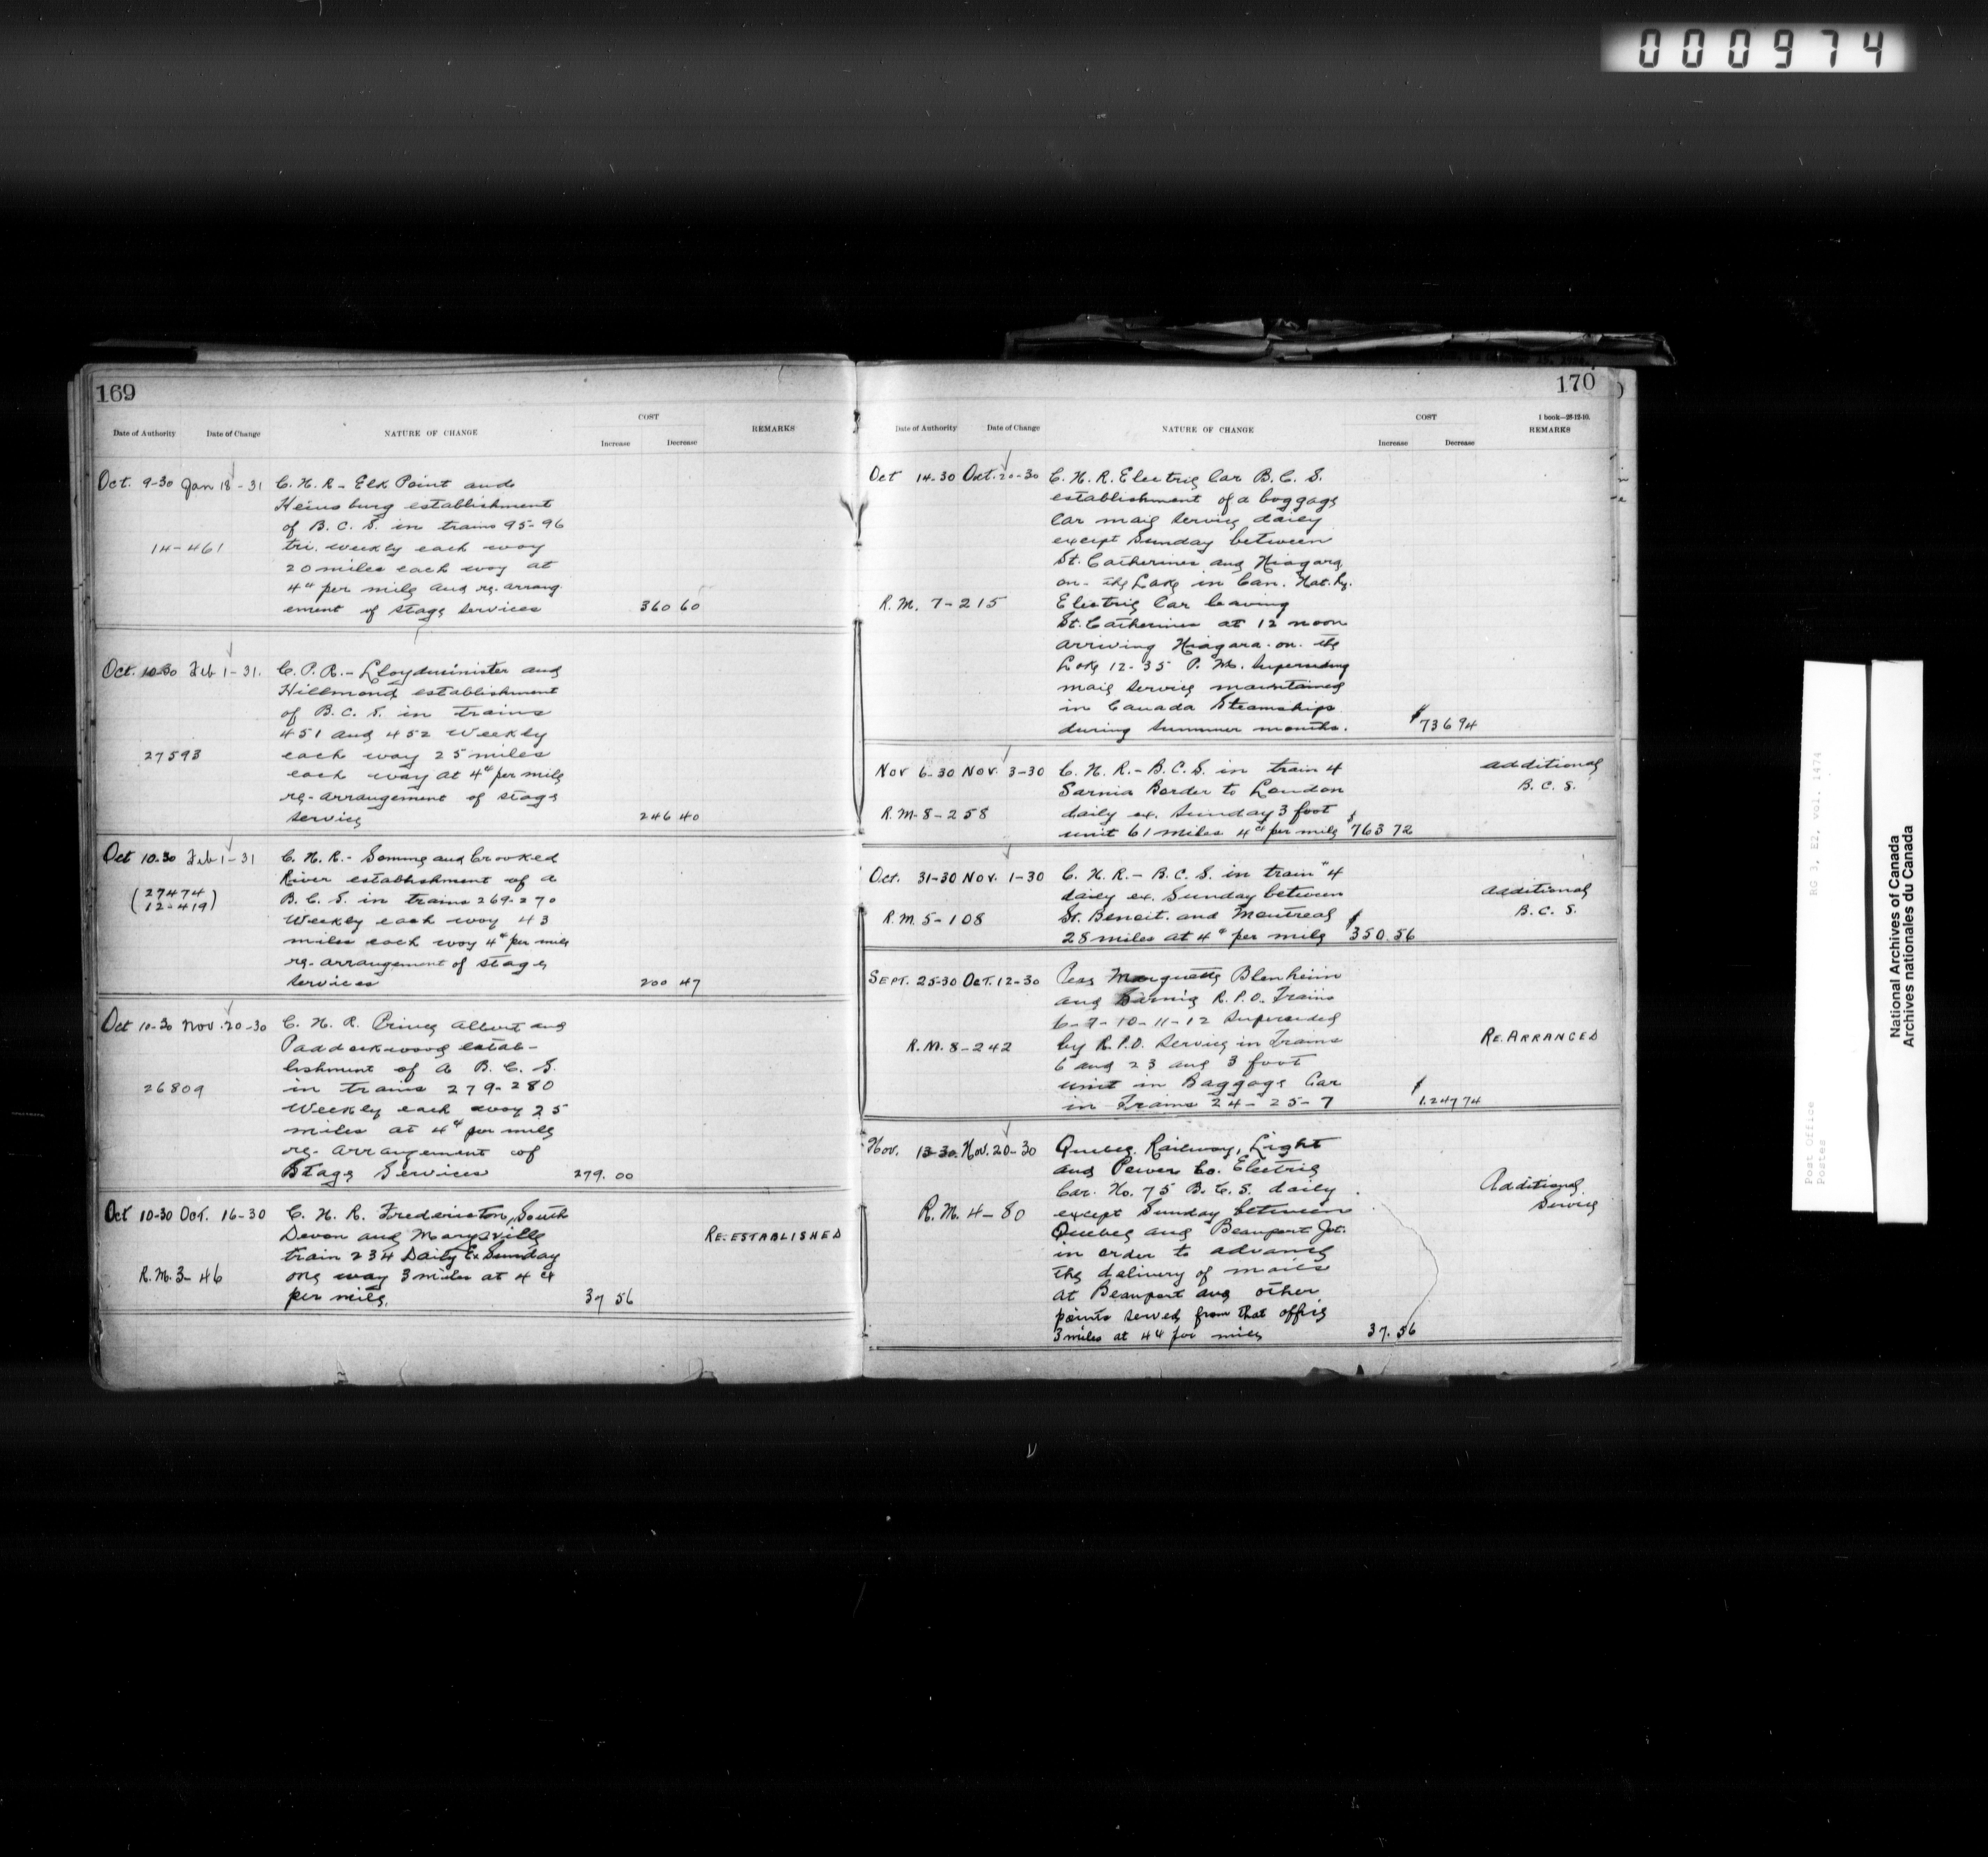 000974
169
COST
Date of Authority Date of Change NATURE OF CHANGE Increase Decrease REMARKS
Oct. 9-30 Jan 18-31 C. N. R. - Elk Point and
Heinsburg establishment
of B. C. S. in trains 95-96
14-461 tri. weekly each way
20 miles each way at
4¢ per mile and re-arrang
ement of stage services 360 60
Oct. 10-30 Feb 1-31. C. P. R. - Lloydminister and
Hillmond establishment
of B. C. S. in trains
451 and 452 Weekly
27593 each way 25 miles
each way at 4¢ per mile
re-arrangement of stage
service 246 40
Oct 10-30 Feb 1-31 C. N. R. - Somme and Crooked
River establishment of a
(27474
12-419) B. C. S. in trains 269-270
Weekly each way 43
miles each way 4¢ per mile
re-arrangement of stage
services 200 47
Oct 10-30 Nov. 20-30 C. N. R. Prince Albert and
Paddockwood estab-
lishment of a B. C. S.
26809 in trains 279-280
Weekly each way 25
miles at 4¢ per mile
re-arrangement of
Stage Services 279.00
Oct 10-30 Oct. 16-30 C. N. R. Fredericton, South
Devon and Marysville RE-ESTABLISHED
train 234 Daily Ex Sunday
R. M. 3-46 one way 3 miles at 4 ¢
per mile. 37 56
170
COST 1 book—28-12-10.
Date of Authority Date of Change NATURE OF CHANGE Increase Decrease REMARKS
Oct 14-30 Oct. 20-30 C. N. R. Electric Car B. C. S.
establishment of a baggage
car mail service daily
except Sunday between
St. Catherines and Niagara
on-the Lake in Can. Nat. Ry.
R. M. 7-215 Electric Car leaving
St. Catherines at 12 noon
arriving Niagara-on-the
Lake 12-35 P. M. superseding
mail service maintained
in Canada Steamships
during summer months. $736 94
Nov 6-30 Nov. 3-30 C. N. R. - B. C. S. in train 4 additional
Sarnia Border to London B. C. S.
R. M. 8-258 daily ex. Sunday 3 foot
unit 61 miles 4¢ per mile $763 72
Oct. 31-30 Nov. 1-30 C. N. R. - B. C. S. in train "4
daily ex. Sunday between additional
R. M. 5-108 St. Benoit. and Montreal B. C. S.
28 miles at 4¢ per mile $350.56
SEPT. 25-30 OCT. 12-30 Pere Marquette Blenheim
and Sarnia R. P. O. Trains
6-7-10-11-12 superseded
R. M. 8-242 by R. P. O. Service in Trains RE.ARRANGED
6 and 23 and 3 foot
unit in Baggage Car
in Trains 24-25-7 $1,247 74
Nov. 13-30. Nov. 20-30 Quebec Railway, Light
and Power Co. Electric
Car. No. 75 B. C. S. daily Additional
R. M. 4-80 except Sunday between Service
Quebec and Beauport Jct.
in order to advance
the delivery of mails
at Beauport and other
points served from that office
3 miles at 4¢ per mile 37.56
Post Office RG 3, E2, vol. 1474
Postes
National Archives of Canada
Archives nationales du Canada